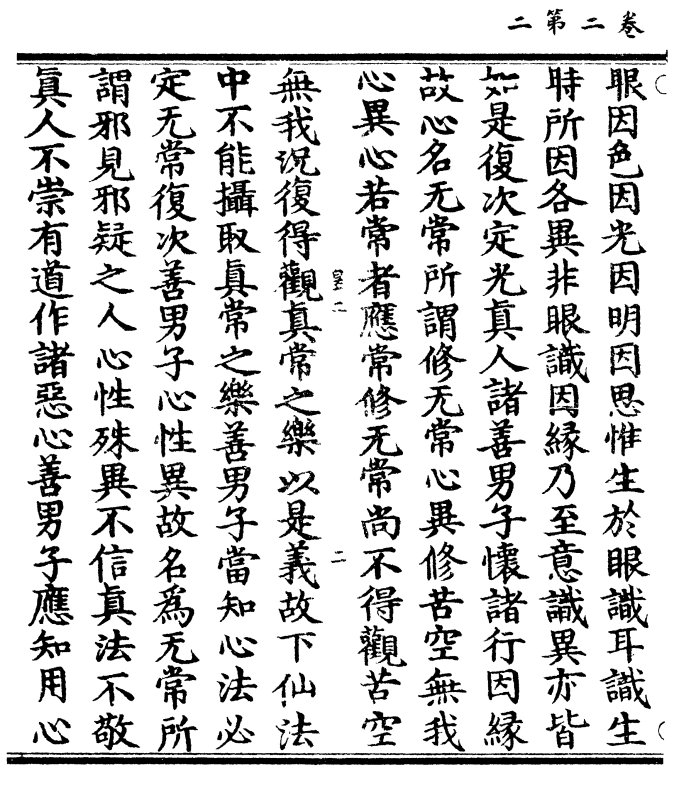 卷二第二
眼因色因光因明因思惟生於眼識耳識生
時所因各異非眼識因緣乃至意識異亦皆
如是復次定光真人諸善男子懷諸行因緣
故心名无常所謂修无常心異修苦空無我
心異心若常者應常修无常尚不得觀苦空
二
無我況復得觀真常之樂以是義故下仙法
中不能攝取真常之樂善男子當知心法必
定无常復次善男子心性異故名為无常所
謂邪見邪疑之人心性殊異不信真法不敬
真人不崇有道作諸惡心善男子應知用心